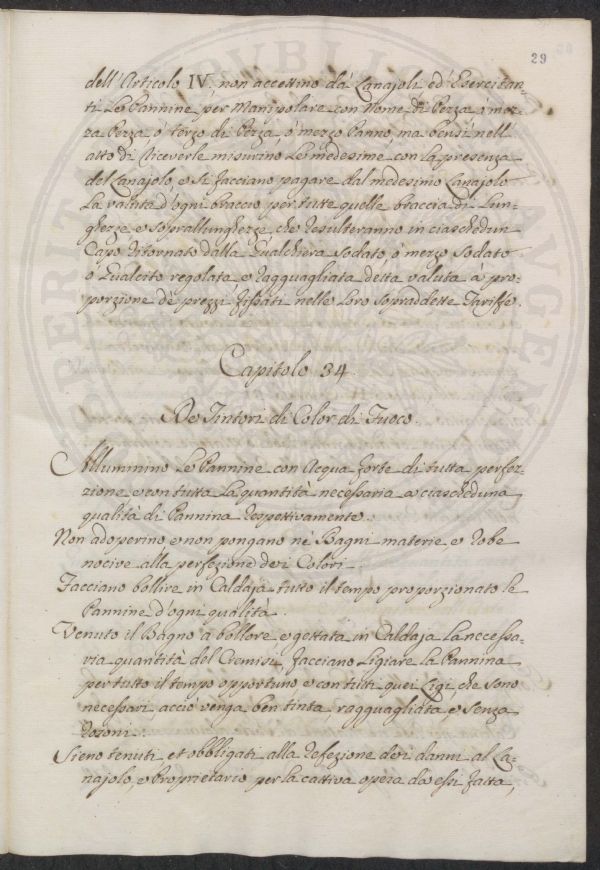 29
dell' Articolo IV. non accettino da' Lanajoli, ed' Esercitan=
ti Le Pannine per Manipolare con Nome di Pezza, ò mez=
za Pezza, ò terzo di Pezza, ò mezzo Panno, ma bensì nell'
atto di Riceverle misurino Le medesime con La presenza
del Lanajolo, e si facciano pagare dal medesimo Lanajolo
La valuta d'ogni braccio per tutte quelle braccia di Lun=
ghezze, e Soprallunghezze, che Resulteranno in ciaschedun
Capo Ritornato dalla Gualchiera Sodato, ò mezzo Sodato
ò Gualcito regolata, e Ragguagliata detta valuta à pro=
porzione de prezzi fissati nelle Loro Sopraddette Tariffe.
Capitolo 34.
De Tintori di Color di Fuoco.
Alluminino Le Pannine con Acqua forte di tutta perfez=
zione, e con tutta La quantità necessaria a ciascheduna
qualità di Pannina Respettivamente.
Non adoperino, e non pongano ne' Bagni materie, e Robe
nocive alla perfezione dei Colori.
Facciano bollire in Caldaja tutto il tempo proporzionato le
Pannine d'ogni qualità.
Venuto il Bagno a bollore, e gettata in Caldaja La necessa=
ria quantità del Cremisi, facciano Ligiare La Pannina
per tutto il tempo opportuno, e con tutti quei Ligi, che sono
necessari, acciò venga ben tinta, ragguagliata, e Senza
Rozoni.
Sieno tenuti, et obbligati alla Refezione dei danni al La=
najolo, e Proprietario per la cattiva opera da essi fatta,